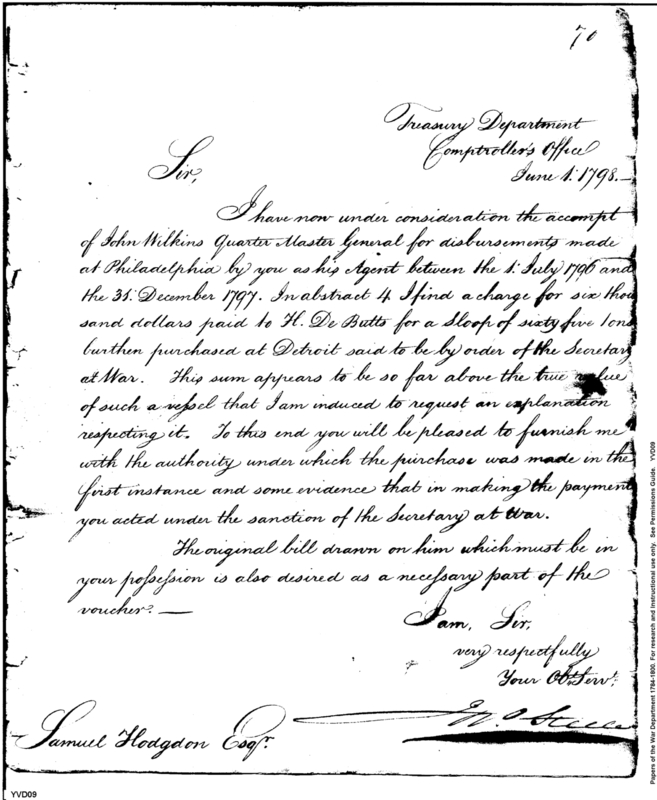 70
Treasury Department
Comptroller's Office
June 1. 1798.—
Sir,
I have now under consideration the accompt
of John Wilkins Quarter Master General for disbursements made
at Philadelphia by you as his Agent between the 1. July 1796 and
the 31. December 1797. In abstract 4 I find a charge for six thou
sand dollars paid to H. De Butts for a Sloop of sixty five tons
burthen purchased at Detroit said to be by order of the Secretary
at War. This sum appears to be so far above the true value
of such a vessel that I am induced to request an explanation
respecting it. To this end you will be pleased to furnish me
with the authority under which the purchase was made in the
first instance and some evidence that in making the payment
you acted under the sanction of the Secretary at War.
The original bill drawn on him which must be in
your possession is also desired as a necessary part of the
voucher. —
I am, Sir,
very respectfully
Your Obt. Servt.
Jno. Steele
Samuel Hodgdon Esqr.
YVD09
Papers of the War Department 1784-1800. For research and instructional use only. See Permissions Guide. YVD09